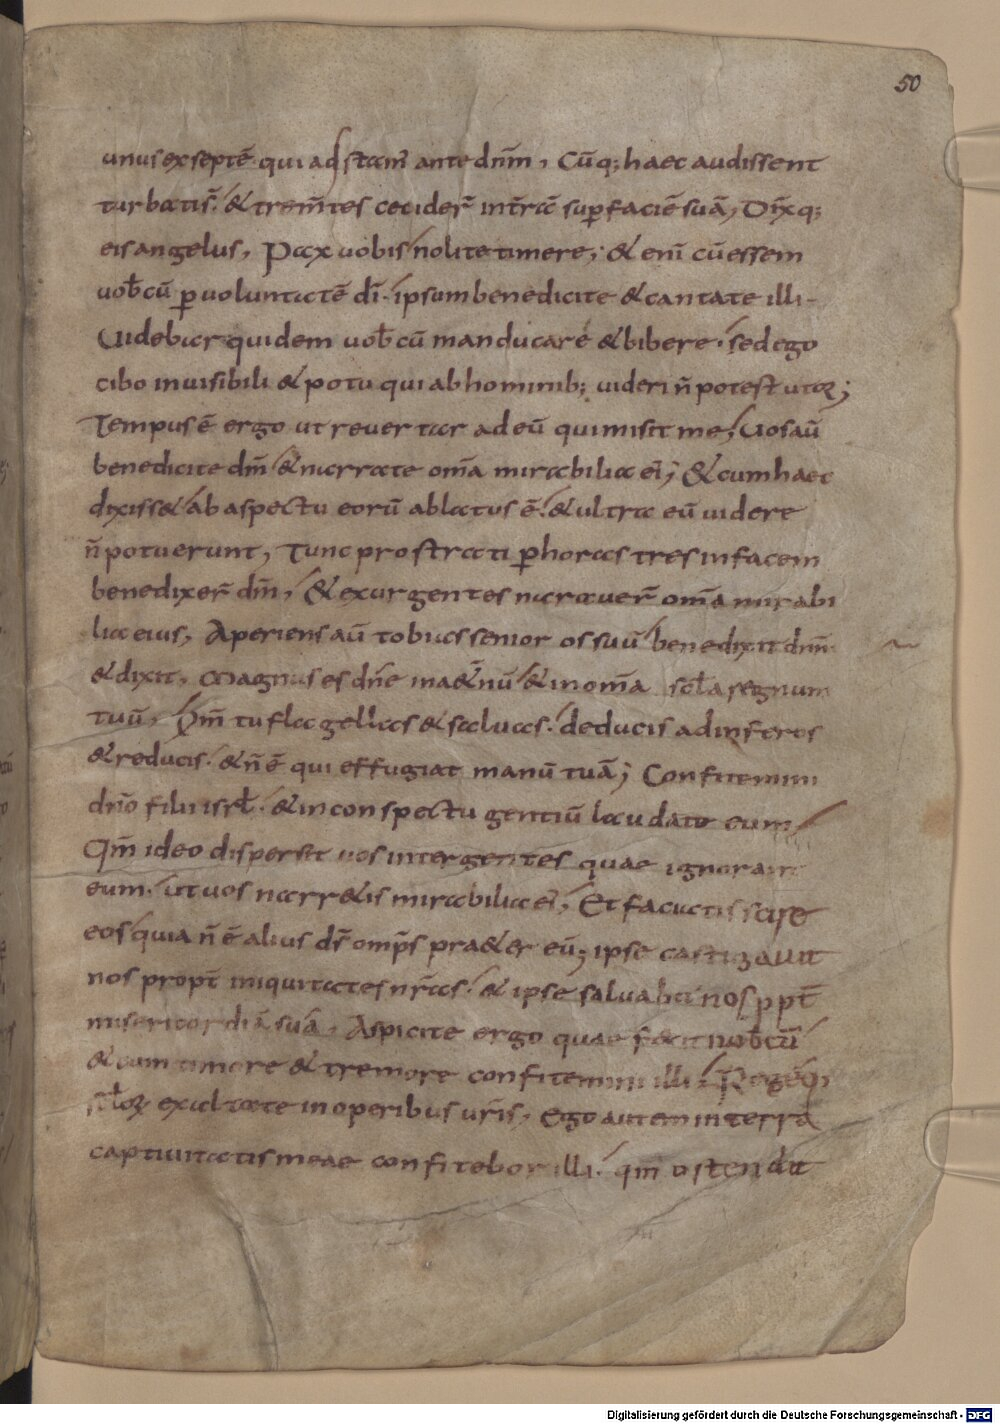 50
unus ex septē qui adstam̄ ante dnm̄, Cūq; haec audissent
turbatis̄ & trem̄tes cecider̄ int̄rā sup̱ faciē suā, Dix̄q;
eis angelus, Pax uobis nolite timere; & eni cū essem
uob̄cū p̱ uoluntatē dī ipsum benedicite & cantate illi
Uidebar quidem uob̄cū manducare & bibere. sed ego
cibo inuisibili & potu qui ab hominib; uideri n̄ potest utor;
Tempus ē ergo ut reuertar ad eū qui misit me, Uos aū
benedicite dm̄ & narrate om̄a mirabilia eī; & cum haec
dixiss& ab aspectu eorū ablatus ē. & ultra eū uidere
n̄ potuerunt, Tunc prostrati p̱ horas tres in facem
benedixer̄ dm̄, & exurgentes narrauer̄ om̄a mirabi
lia eius, Aperiens aū tobias senior os suū benedixit dnm̄
& dixit, Magnus es dn̄e in a&nū & in om̄a sc̄la regnum
tuū, Qm̄ tu flagellas & saluas. deducis ad inferos
& reducis. & n̄ ē qui effugiat manū tuā; Confitemini
dn̄o filii isrl̄. & in conspectu gentiū laudate eum
Qm̄ ideo dispersit uos inter gentes quae ignorant
eum. ut uos narr&is mirabilia eī, Et faciatis scire
eos quia n̄ ē alius ds̄ omp̄s pra&er eū; ipse castigauit
nos propt̄ iniquitates nr̄as. & ipse saluabit nos ppt̄
misericordiā suā, Aspicite ergo quae fecit uob̄cū
& cum timore & tremore confitemini illi, Regēq;
sc̄lorum exaltate in operibus ur̄is, Ego autem in terra
captiuitatis meae confitebor illi. qm̄ ostendit
Digitalisierung gefördert durch die Deutsche Forschungsgemeinschaft - DFG